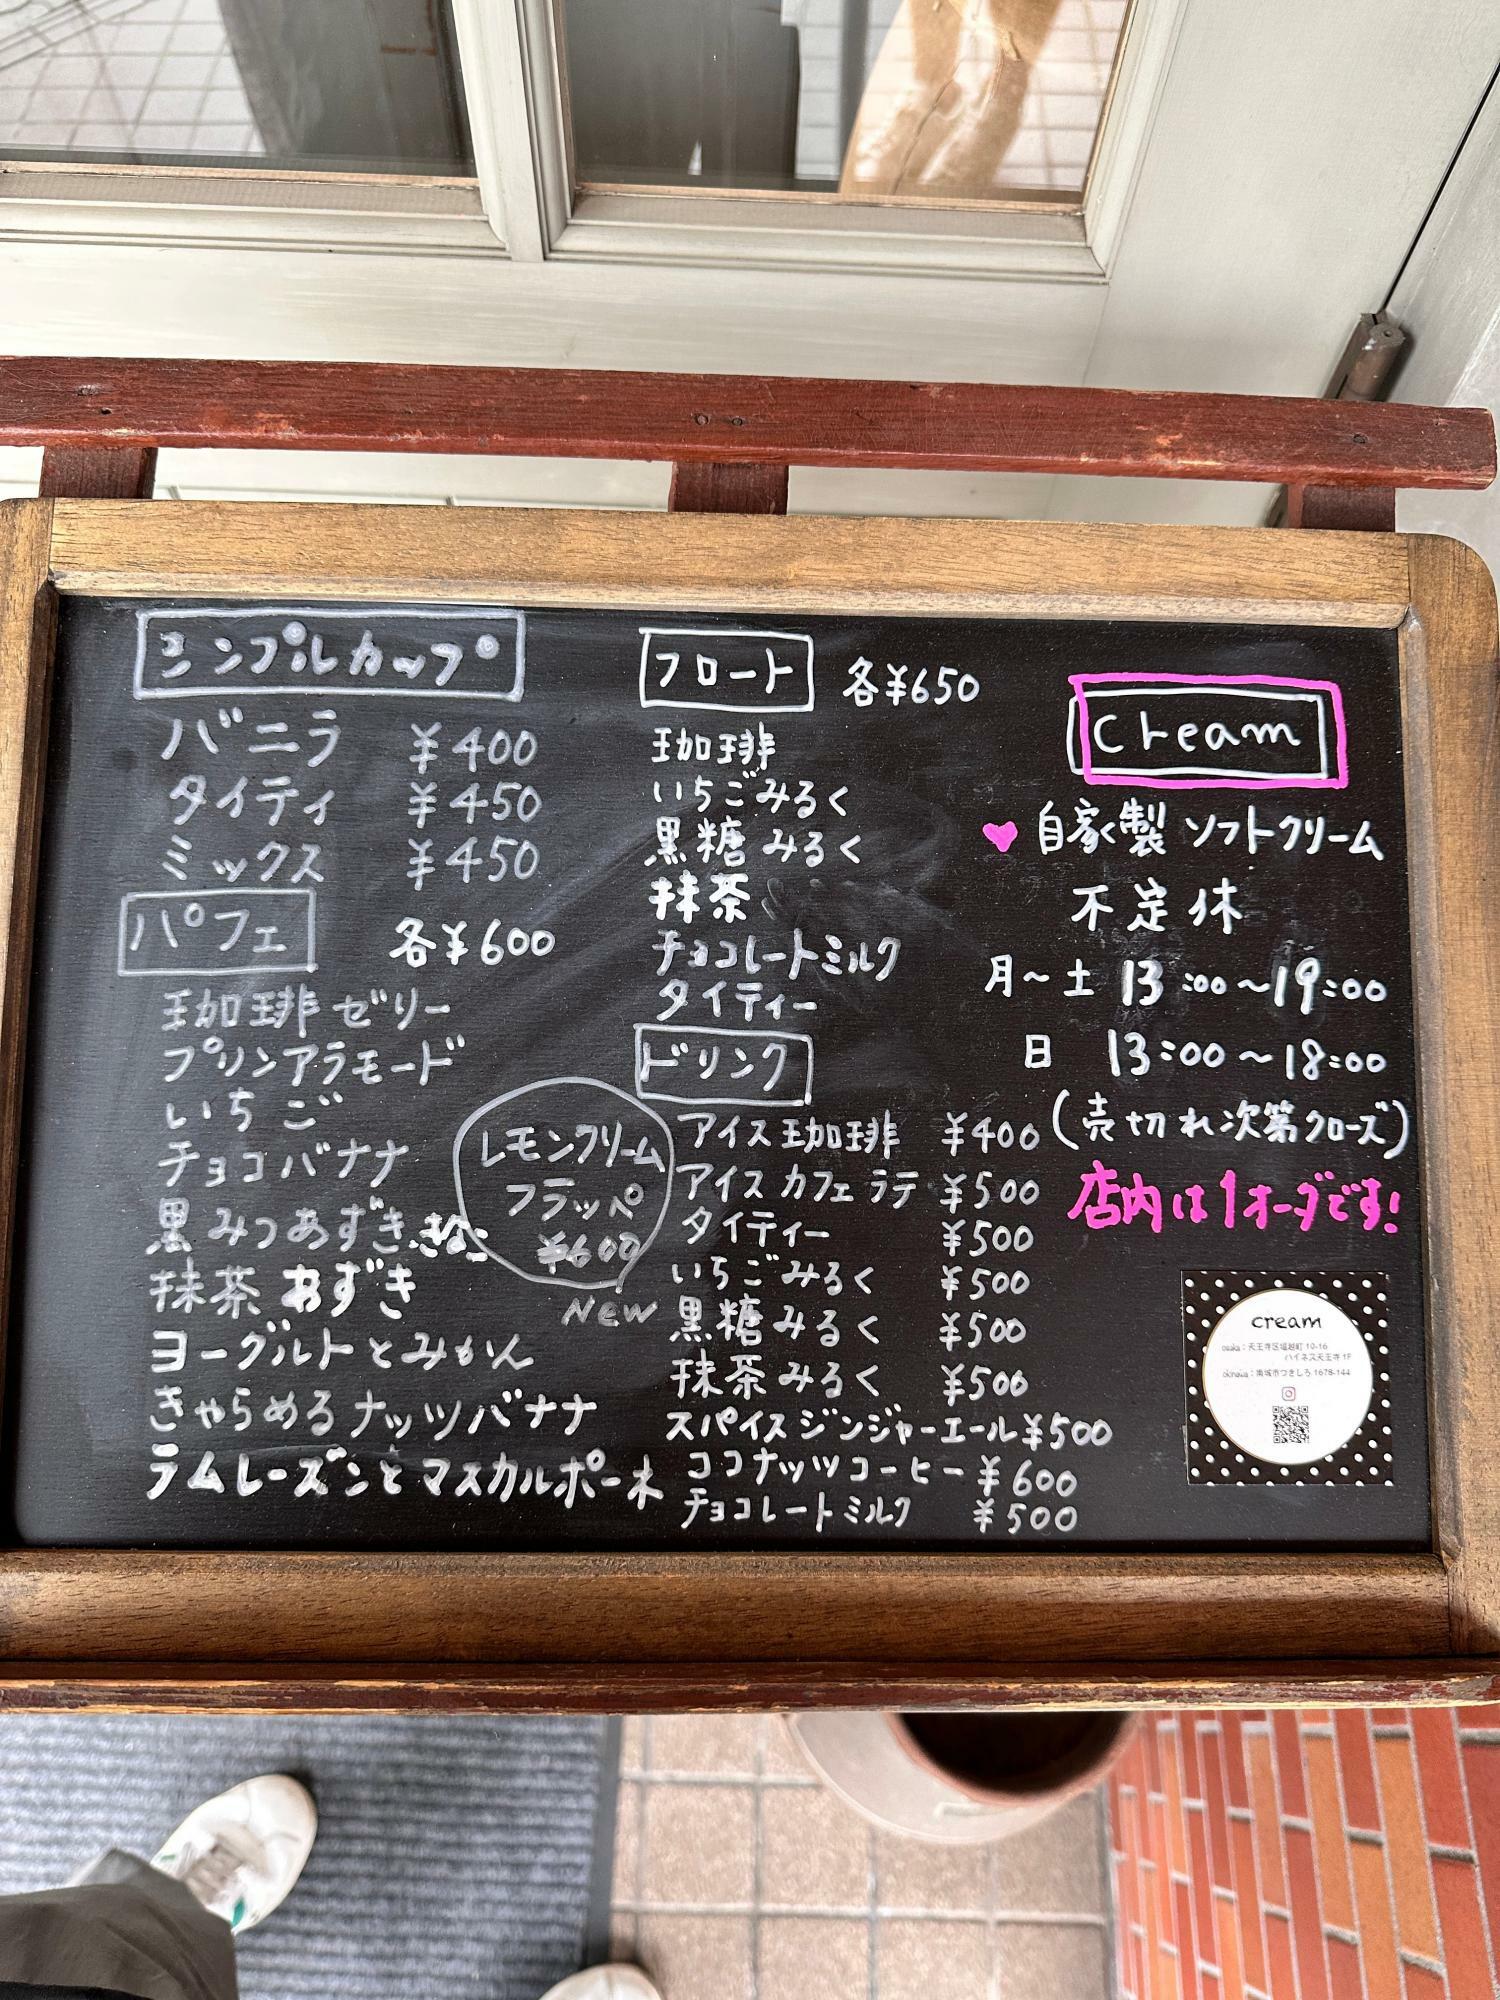 シンプルカップ
バニラ ¥400
タイティ ¥450
ミックス ¥450
パフェ 各¥600
珈琲ゼリー
プリンアラモード
いちご
チョコバナナ
黒みつあずききなこ
抹茶あずき
ヨーグルトとみかん
きゃらめるナッツバナナ
ラムレーズンとマスカルポーネ
レモンクリーム
フラッペ
¥600
New
フロート 各¥650
珈琲
いちごみるく
黒糖みるく
抹茶
チョコレートミルク
タイティー
ドリンク
アイス珈琲 ¥400
アイスカフェラテ ¥500
タイティー ¥500
いちごみるく ¥500
黒糖みるく ¥500
抹茶みるく ¥500
スパイスジンジャーエール ¥500
ココナッツコーヒー ¥600
チョコレートミルク ¥500
cream
♥自家製ソフトクリーム
不定休
月〜土 13:00〜19:00
日 13:00〜18:00
(売切れ次第クローズ)
店内は1オーダです!
cream
osaka:天王寺区堀越町10-16
ハイネス天王寺1F
okinawa:南城市つきしろ1678-144